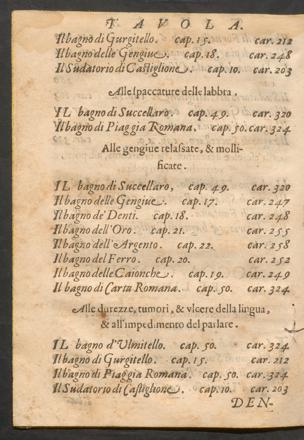 TAVOLA.
Il bagno di Gurgitello. cap. 15. car. 212
Il bagno delle Gengiue. cap. 18. car. 248
Il Sudatorio di Castiglione. cap. 10. car. 203
Alle spaccature delle labbra.
IL bagno di Succellaro. cap. 49. car. 320
Il bagno di Piaggia Romana. cap. 50. car. 324
Alle gengiue relassate, & molli-
ficate.
IL bagno di Succellaro, cap. 49. car. 320
Il bagno delle Gengiue. cap. 17. car. 247
Il bagno de' Denti. cap. 18. car. 248
Il bagno dell'Oro. cap. 21. car. 255
Il bagno dell'Argento. cap. 22. car. 258
Il bagno del Ferro. cap. 20. car. 252
Il bagno delle Caionche. cap. 19. car. 249
Il bagno di Carta Romana. cap. 50. car. 324
Alle durezze, tumori, & vlcere della lingua,
& all'impedimento del parlare.
IL bagno d'Vlmitello. cap. 50. car. 324
Il bagno di Gurgitello. cap. 15. car. 212
Il bagno di Piaggia Romana. cap. 50. car. 324
Il Sudatorio di Castiglione. cap. 10. car. 203
DEN-